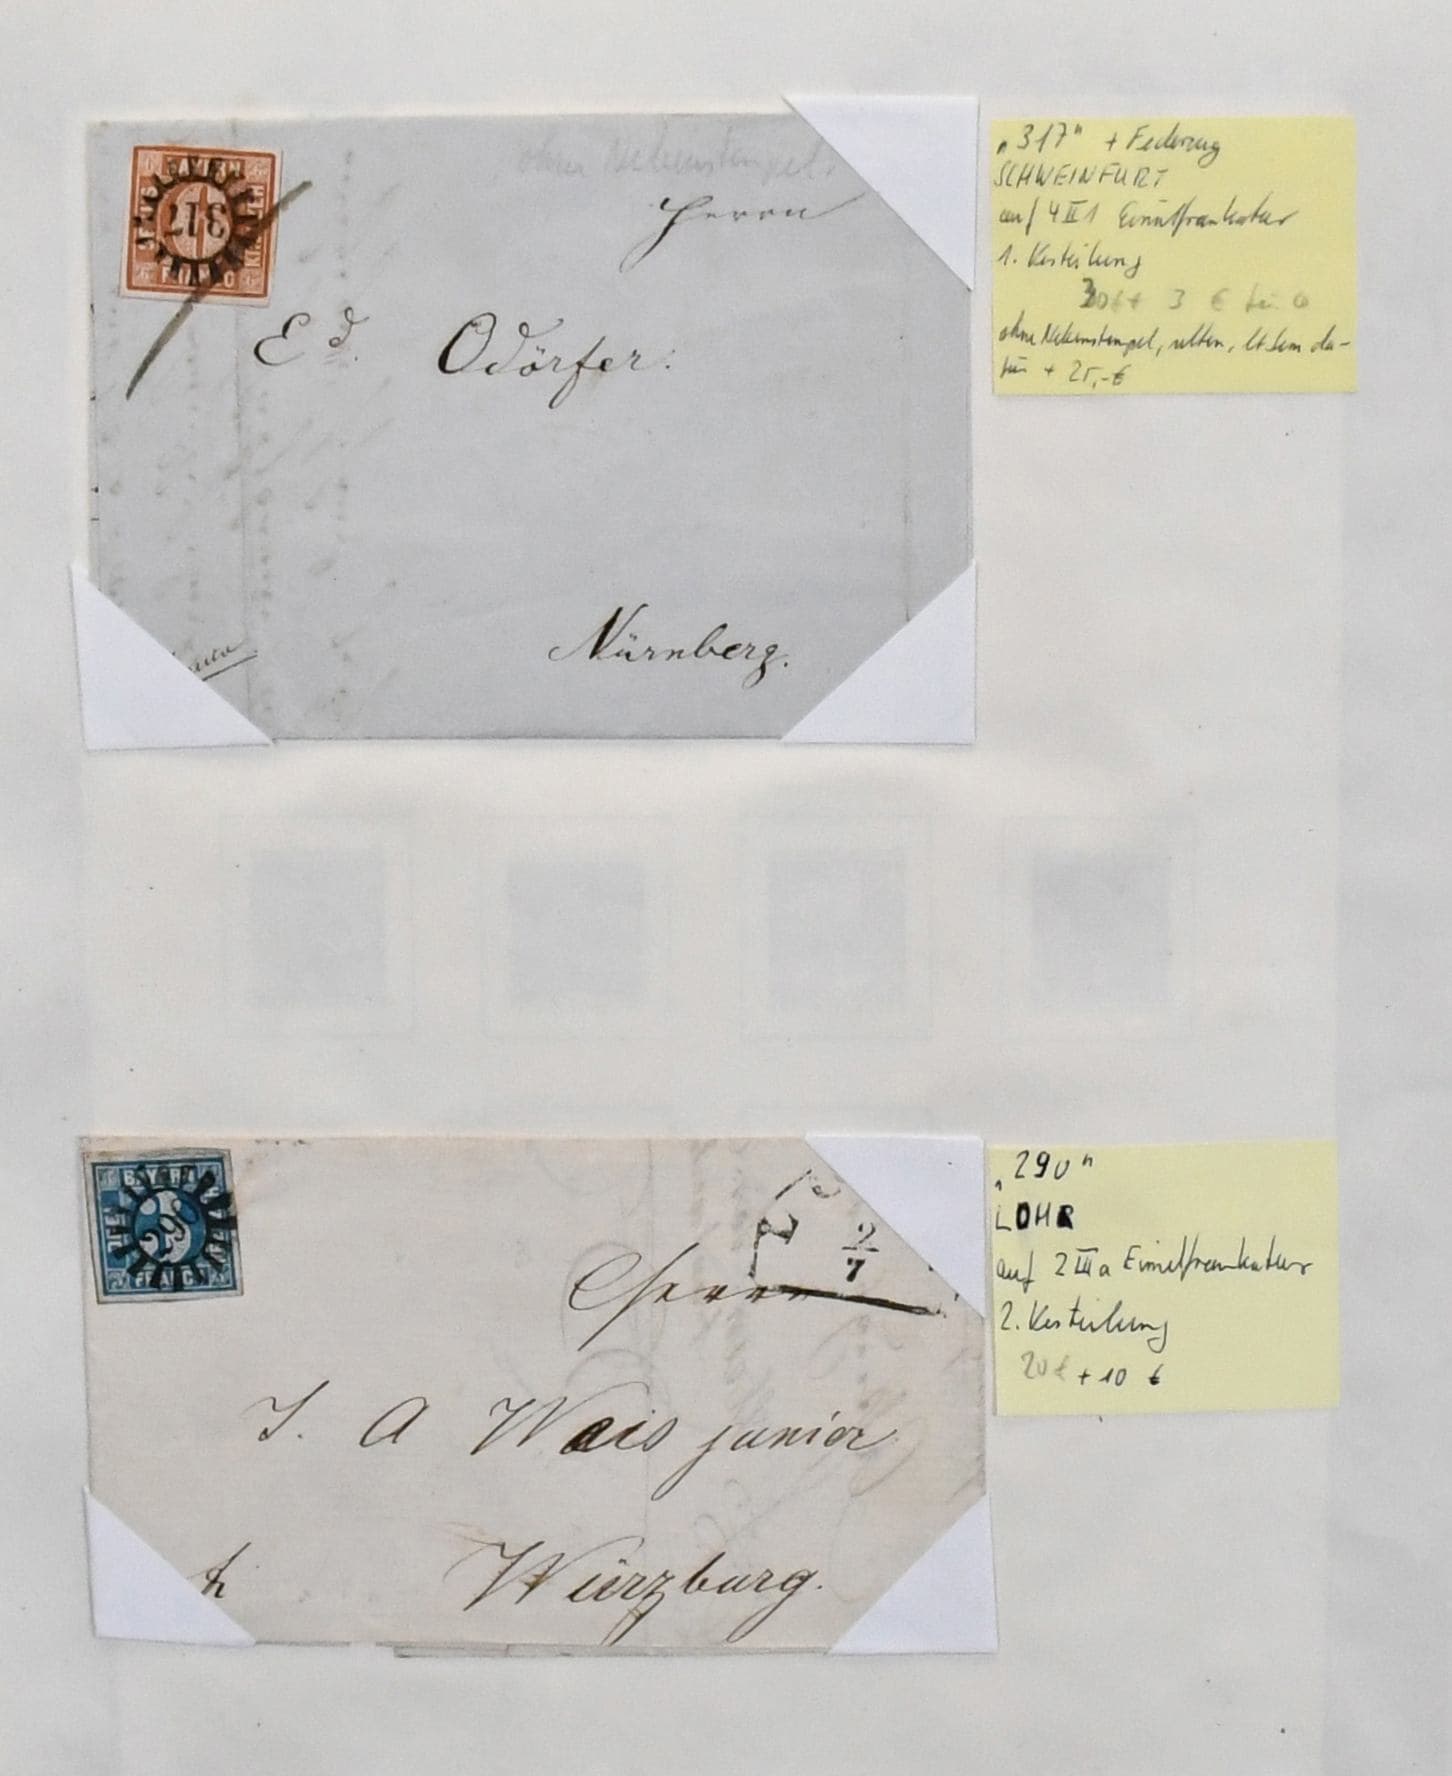 ohne Nebenstempel
Herrn
BAYERN
SECHS
KREUZER
FRANCO
6
317
Ed. Odörfer.
Nürnberg.
„317“ + Federzug
SCHWEINFURT
auf 4 II 1 Einzelfrankatur
1. Verteilung
3 €
ohne Nebenstempel, selten, lt. Sem da-
für + 25,-€
BAYERN
FRANCO
290
2
7
Herrn
J. A Wais junior
Würzburg.
„290“
LOHR
auf 2 III a Einzelfrankatur
2. Verteilung
20 € + 10 €